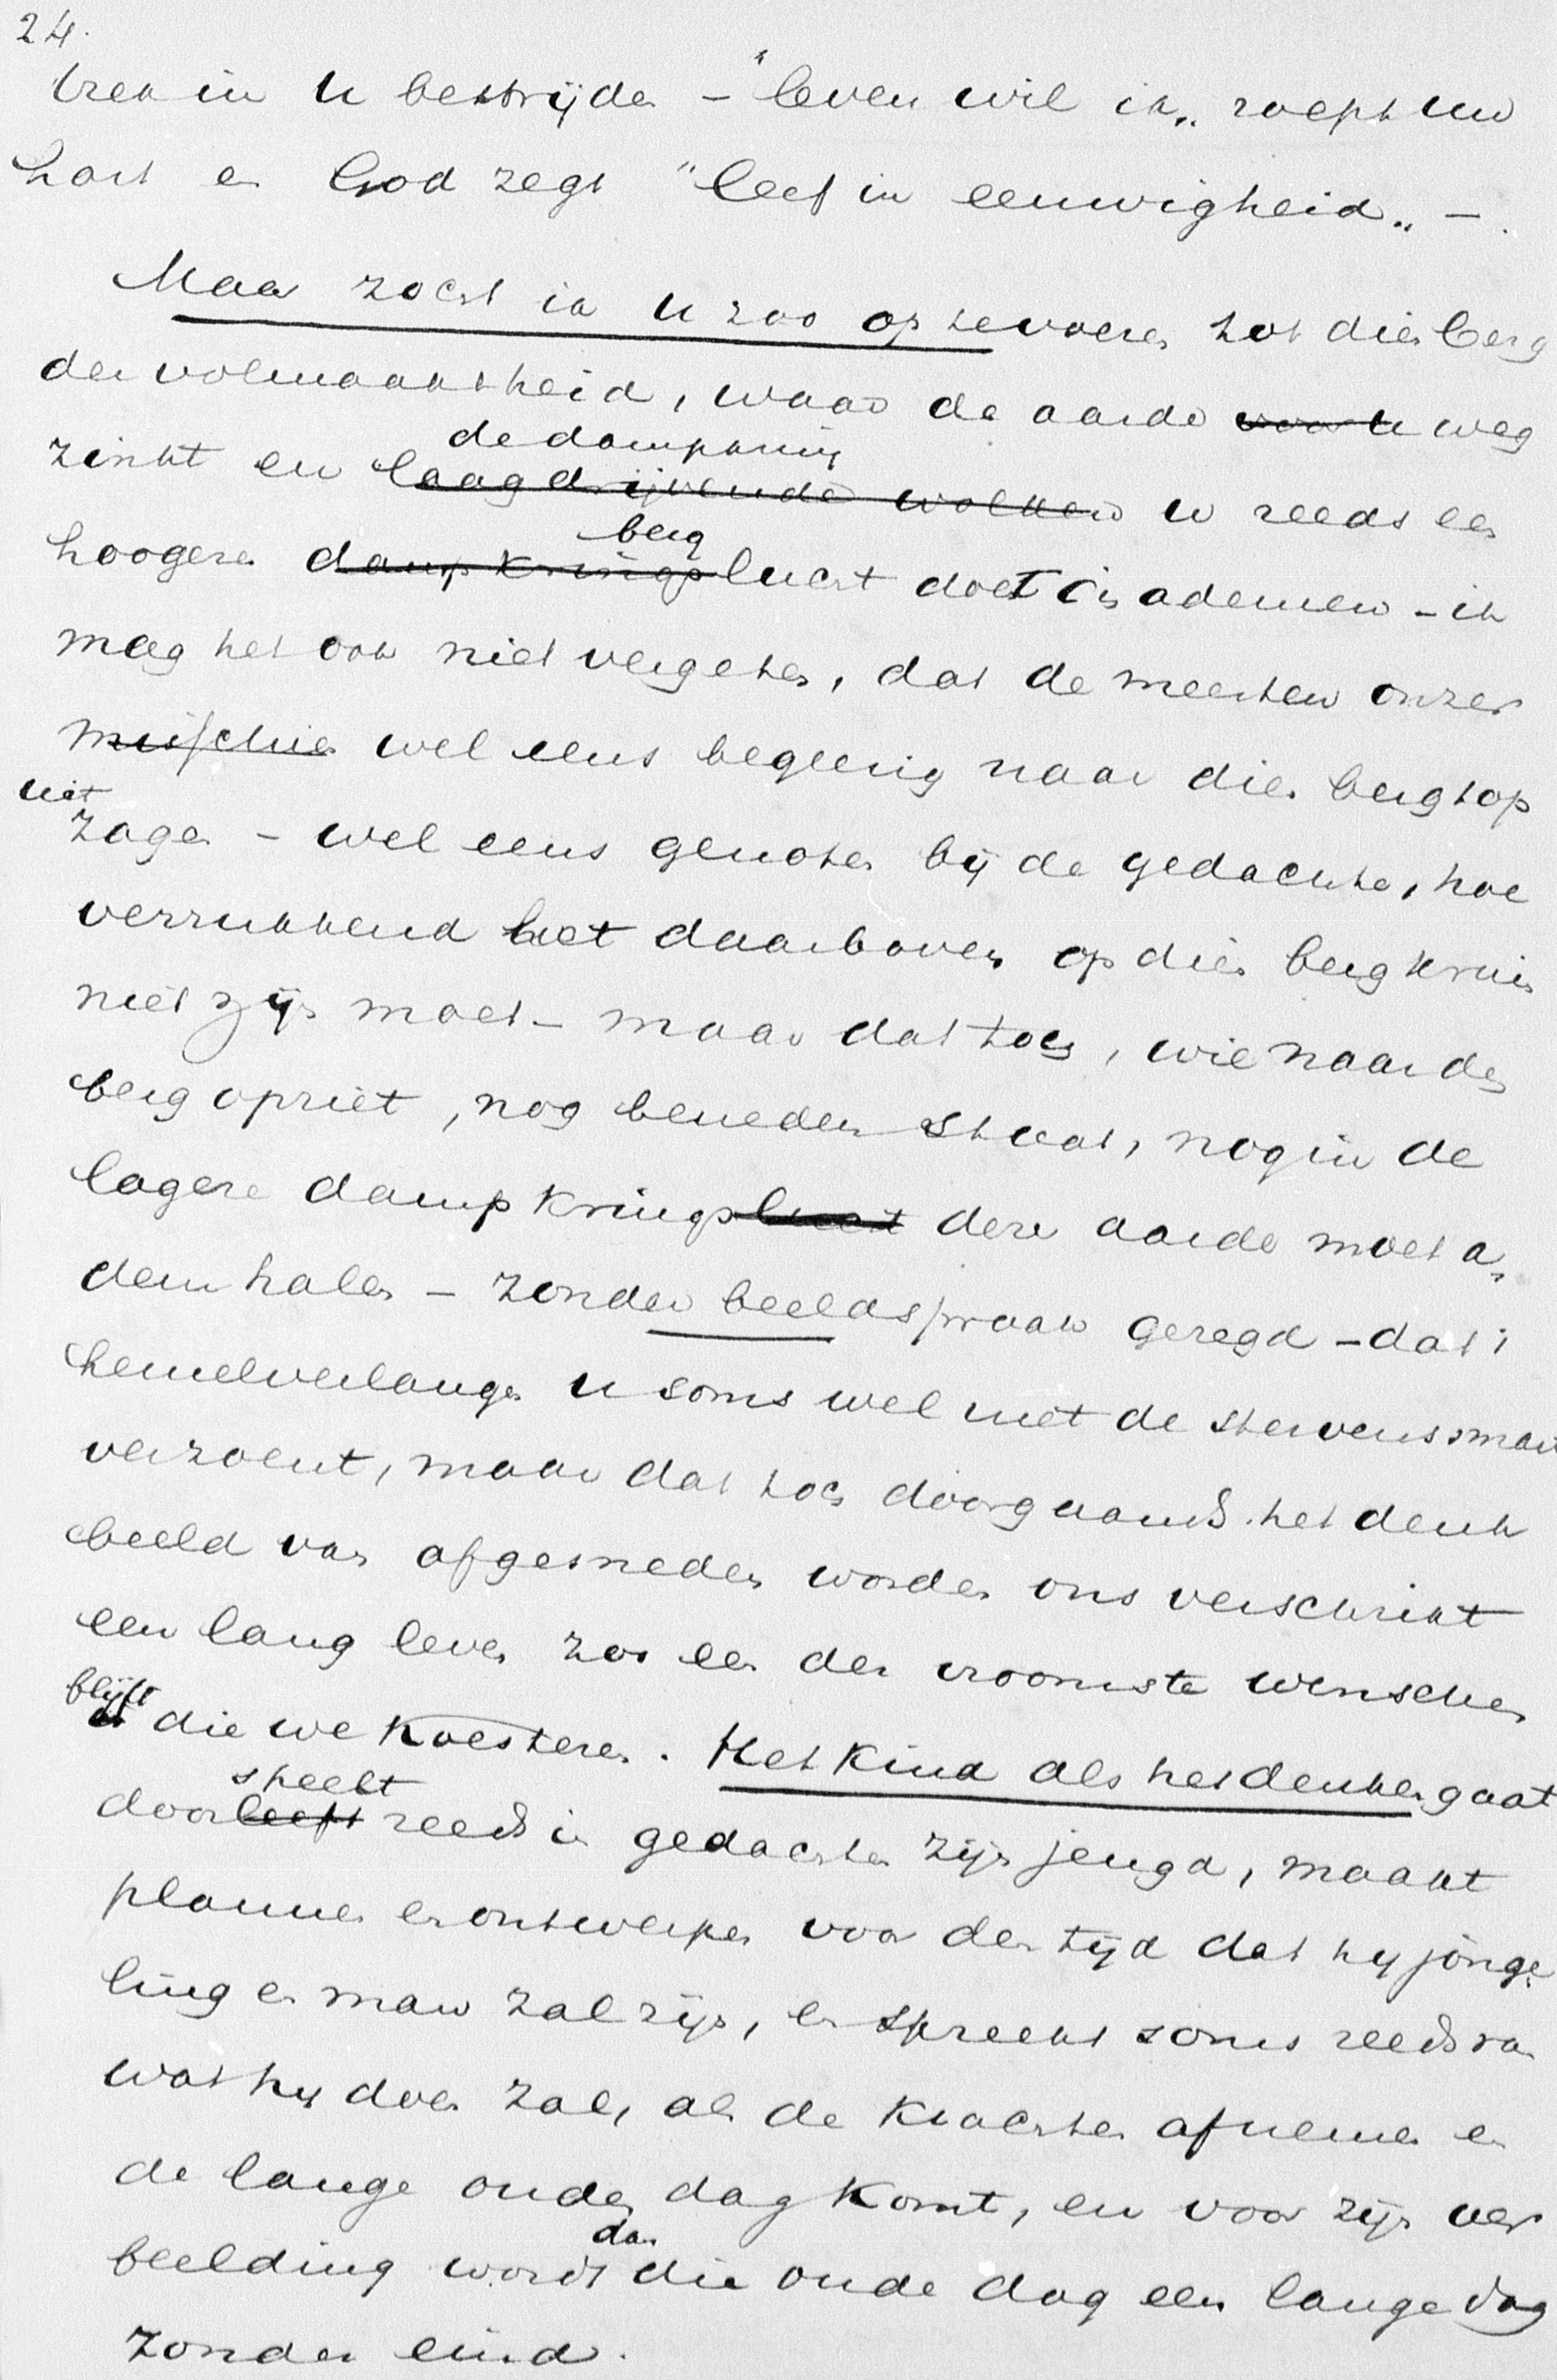 24.
trek in U bestrijden – "leven wil ik„ roept uw
hart en God zegt "leef in eeuwigheid„ –.
Maar zocht ik U zoo op te voeren tot dien berg
der volmaaktheid, waar de aarde voor u weg
zinkt en laagdrijvende wolken de dampkring u reeds een
hoogere dampkrings berg lucht doet in ademen – ik
mag het ook niet vergeten, dat de meesten onzer
misschien wel eens begeerig naar dien bergtop
uit zagen – wel eens genoten bij de gedachte, hoe
verrukkend het daarboven op dien bergkruin
niet zijn moet – maar dat toch, wie naar den
berg opziet, nog beneden staat, nog in de
lagere dampkringslucht dezer aarde moet a„
dem halen – zonder beeldspraak gezegd – dat 't
hemelverlangen u soms wel met de stervenssmart
verzoent, maar dat toch doorgaands het denk
beeld van afgesneden worden ons verschrikt
een lang leven zoo een der vroomste wenschen
is blijft die we koesteren. Het kind als het denken gaat
doorleeft speelt reeds in gedachten zijn jeugd, maakt
plannen en ontwerpen voor den tijd dat hij jonge„
ling en man zal zijn, en spreekt soms reeds van
wat hij doen zal, als de krachten afnemen en
de lange oude dag komt, en voor zijn ver
beelding wordt dan die oude dag een lange dag
zonder eind.